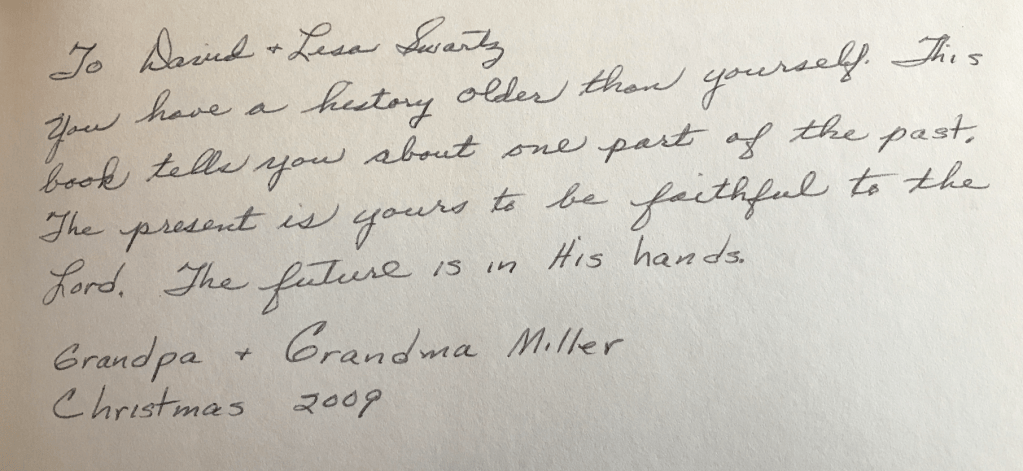 To David + Lesa Swartz
You have a history older than yourself. This
book tells you about one part of the past.
The present is yours to be faithful to the
Lord. The future is in His hands.
Grandpa + Grandma Miller
Christmas 2009